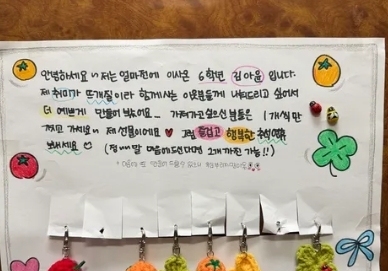 안녕하세요~ 저는 얼마전에 이사온 6학년 김아윤 입니다.
제 취미가 뜨개질이라 함께사는 이웃분들께 나눠드리고 싶어서
더 예쁘게 만들어 봤어요... 가져가고싶으신 분들은 1개씩만
가지고 가세요 제 선물이에요 ♥ 그럼 즐겁고 행복한 추석연휴
보내세요 (정말 맘에드신다면 2개 가진 가능!!)